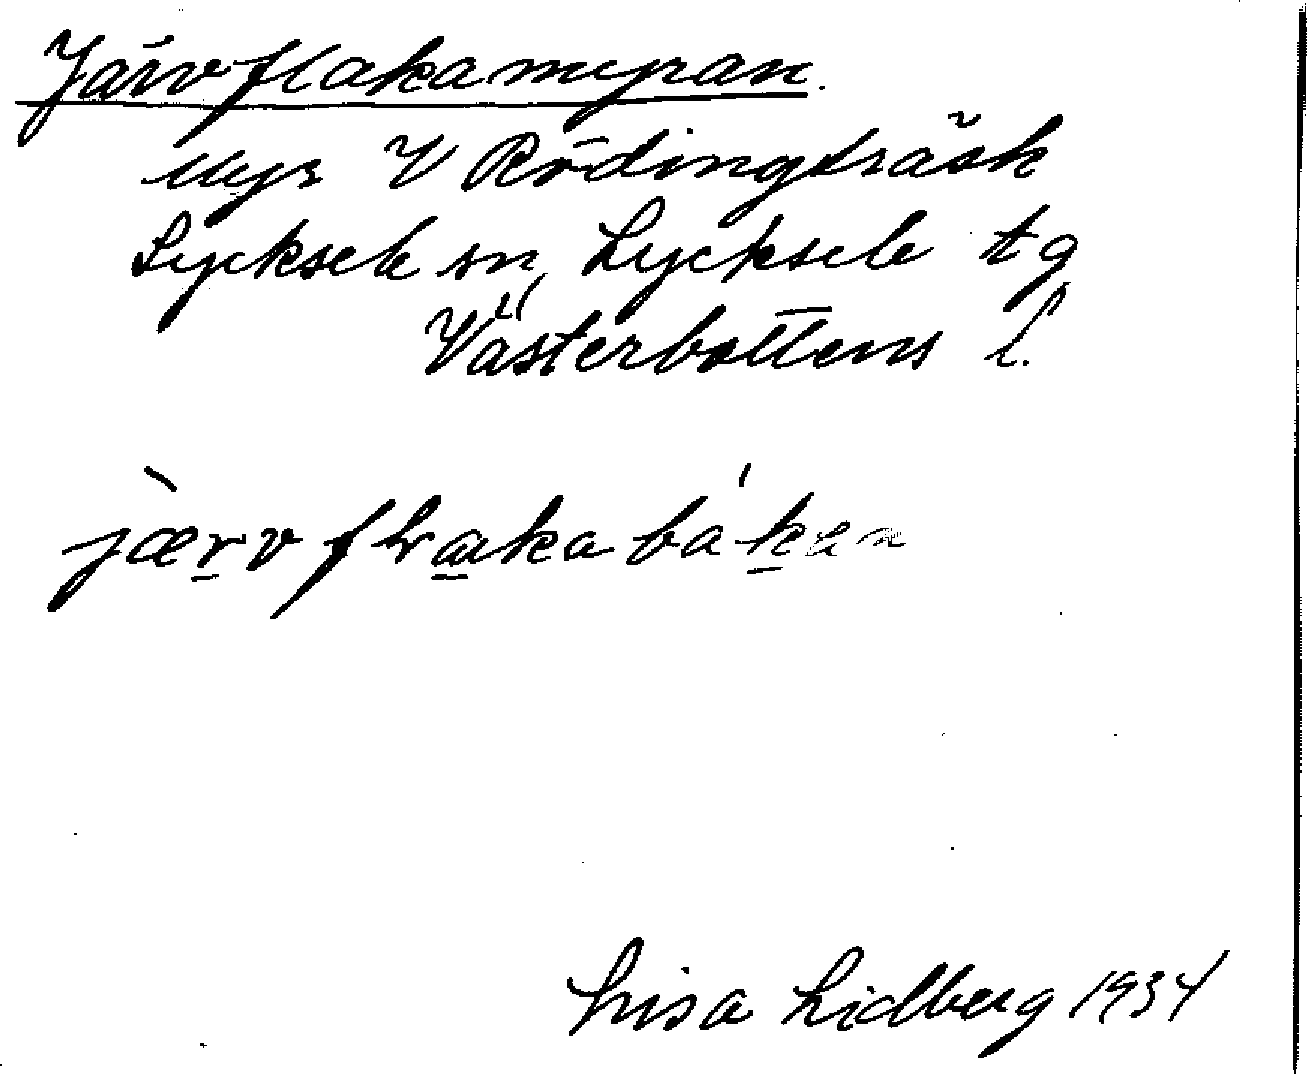 Järvflakamyran.
Myr V Rödingträsk
Lycksele sn, Lycksele tg
Västerbottens l.
jærvflakabákan
Lisa Lidberg 1934